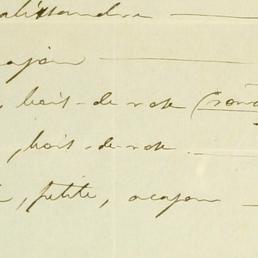 alissandre
ajou
, bois-de-rose (ron
, bois-de-rose
, petite, acajou